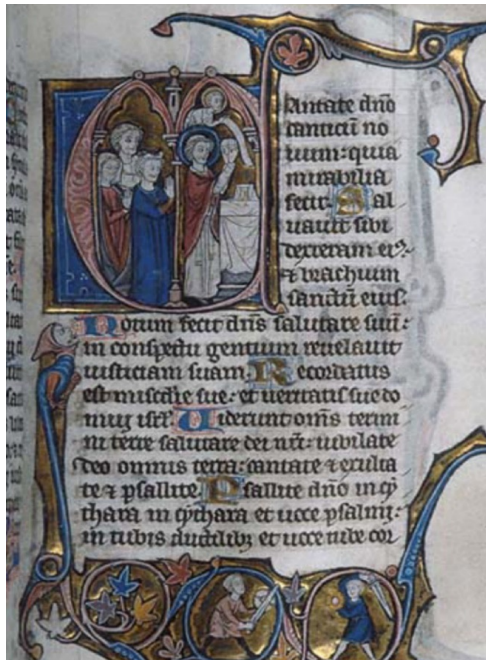 Cantate dño
canticũ no
uum: quia
mirabilia
fecit. Sal
uauit sibi
dextera eiꝰ.
⁊ brachium
sanctũ eius.
Notum fecit dñs salutare suũ:
in conspectu gentium reuelauit
iusticiam suam. Recordatus
est misc̃die sue: et ueritatis sue do
mui isrl̃. Uiderunt om̃s termi
ni terre salutare dei nr̃i: iubilate
deo omnis terra: cantate ⁊ exulta
te ⁊ psallite. Psallite dño in cy
thara in cythara et uoce psalmi:
in tubis ductilibꝫ et uoce tube cor